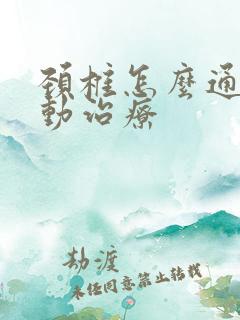 頚椎怎麼通
動治療
劫渡
未任同意禁止转载